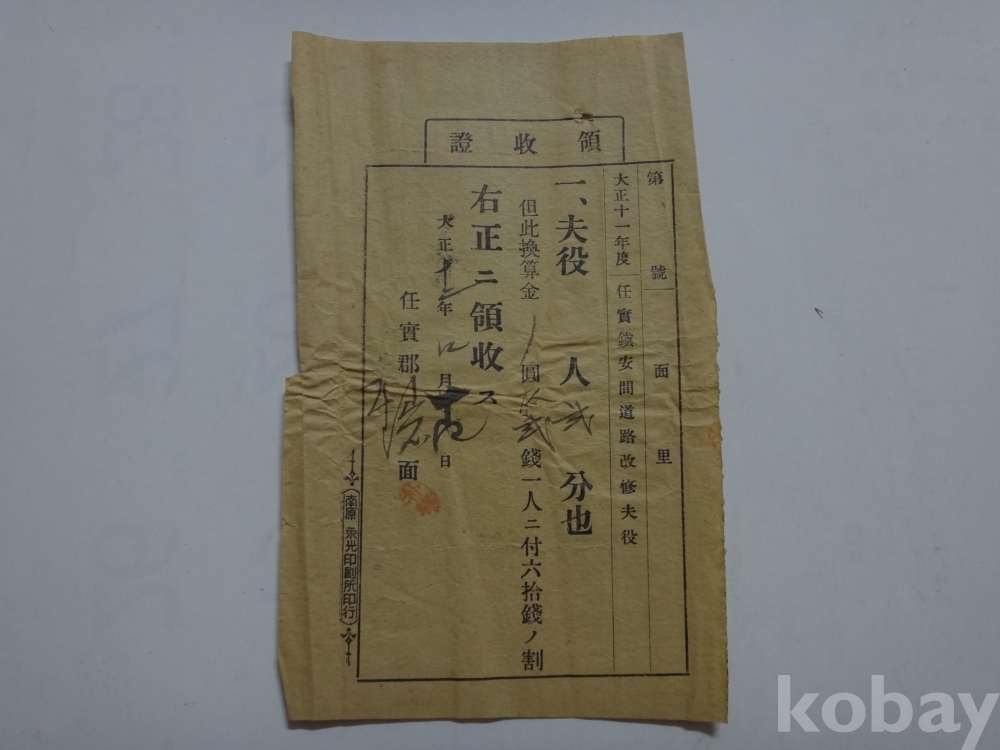 領收證
第 號 面 里
大正十一年度 任實鎭安間道路改修夫役
一、夫役 人 弐 分也
但此換算金 圓 弐 錢一人ニ付六拾錢ノ割
右正ニ領收ス
大正 年 月 日
任實郡 面
南原 印刷所印行
kobay